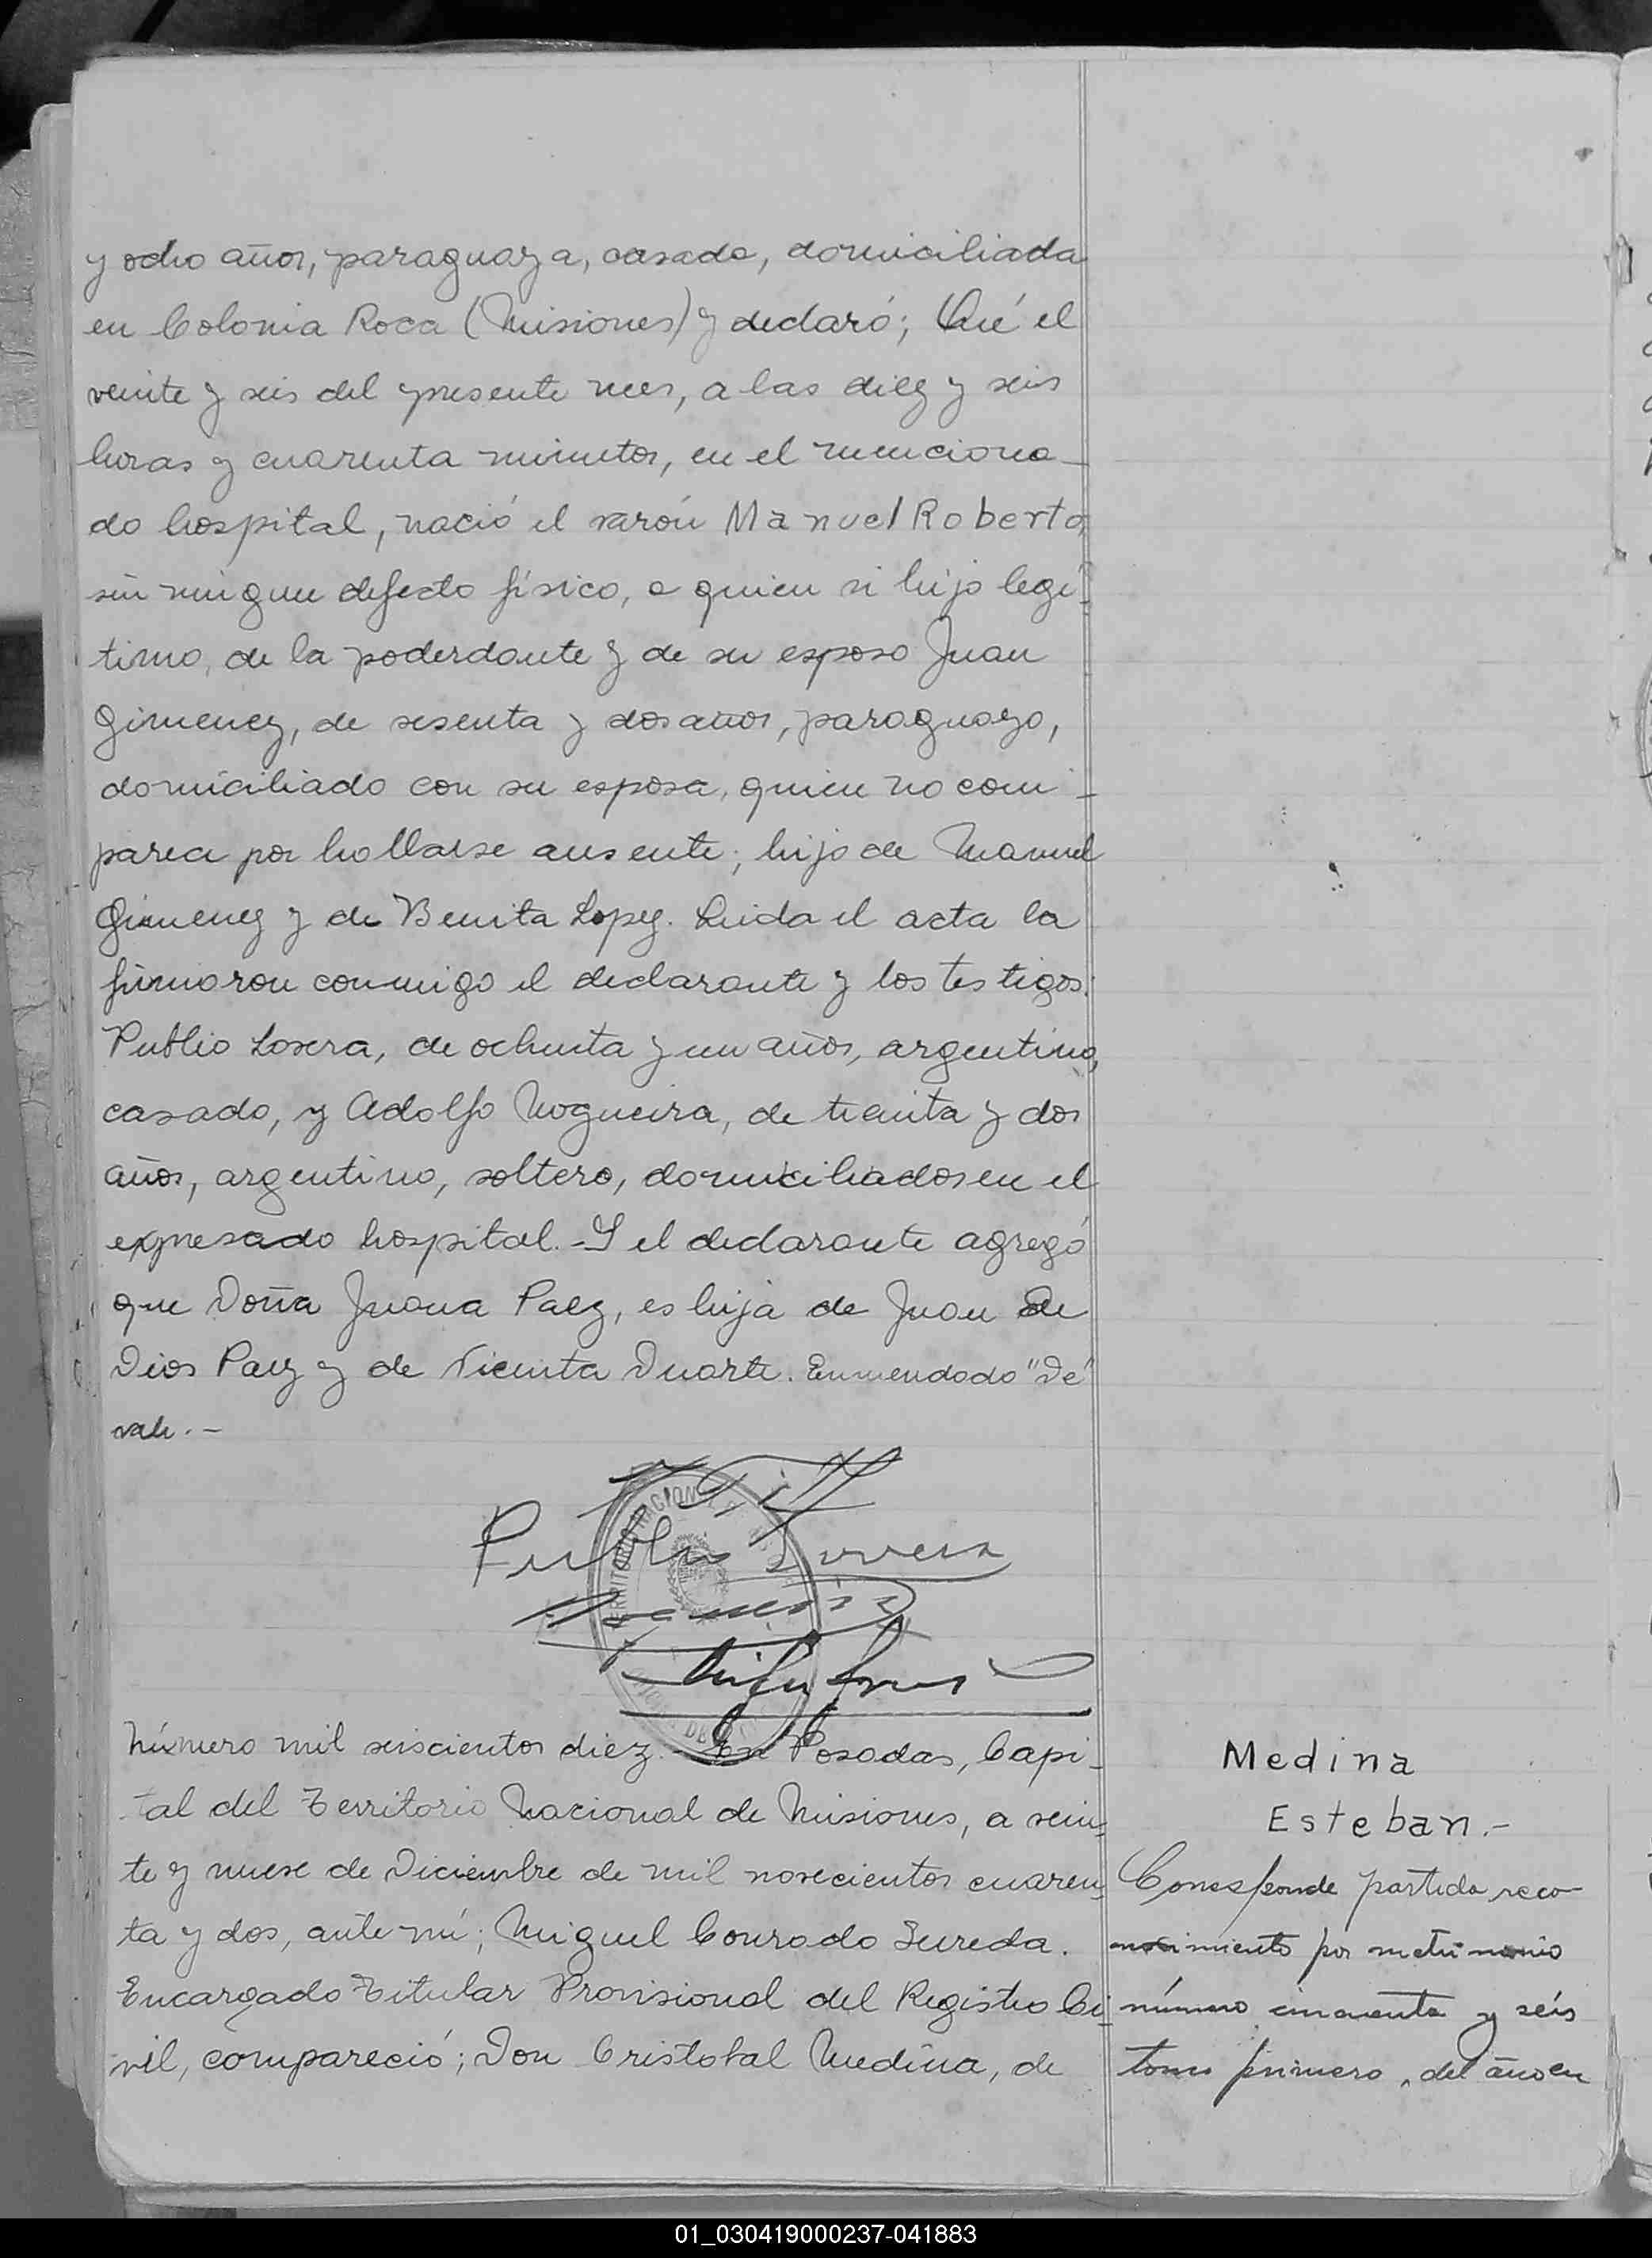 y ocho años, paraguaya, casada, domiciliada
en Colonia Roca (Misiones) y declaró; Qué el
veinte y seis del presente mes, a las diez y seis
horas y cuarenta minutos, en el menciona-
do hospital, nació el varón Manuel Roberto,
sin ningun defecto físico, a quien vi hijo legí-
timo, de la poderdante y de su esposo Juan
Gimenez, de sesenta y dos años, paraguayo,
domiciliado con su esposa, quien no com-
parece por hallarse ausente; hijo de Manuel
Gimenez y de Benita Lopez. Leida el acta la
firmaron conmigo el declarante y los testigos:
Publio Lovera, de ochenta y un años, argentino,
casado, y Adolfo Nogueira, de treinta y dos
años, argentino, soltero, domiciliados en el
expresado hospital.- Y el declarante agregó
que Doña Juana Paez, es hija de Juan De
Dios Paez y de Vicenta Duarte. Enmendado "De"
vale.-
Publio Lovera
Nogueira
Número mil seiscientos diez.- En Posadas, Capi-
tal del Territorio Nacional de Misiones, a vein-
te y nueve de Diciembre de mil novecientos cuaren-
ta y dos, ante mí; Miguel Conrado Sureda.
Encargado Titular Provisional del Registro Ci-
vil, compareció; Don Cristobal Medina, de
Medina
Esteban.-
Corresponde partida reco-
nocimiento por matrimonio
número cincuenta y seis
tomo primero, del año en
01_030419000237-041883